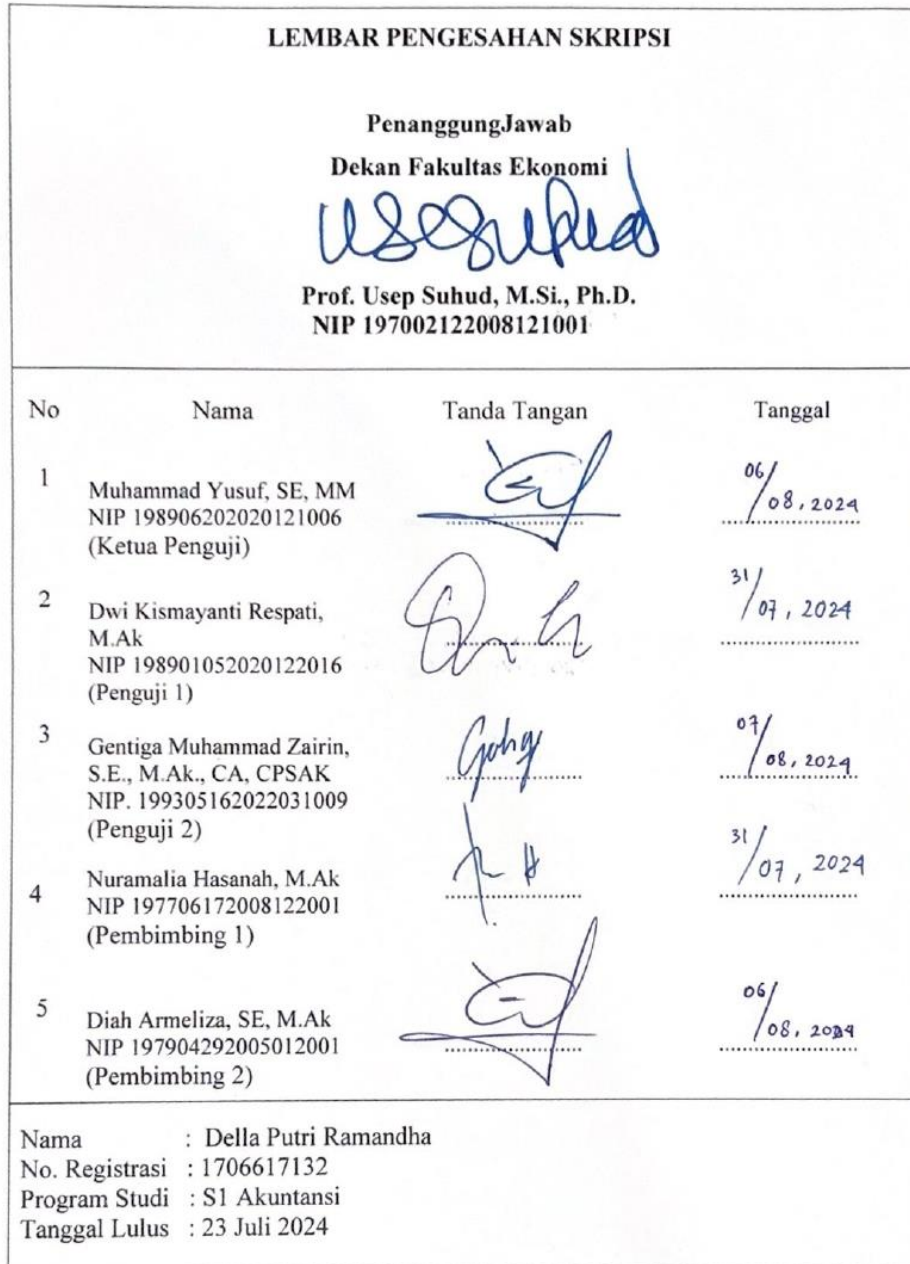 LEMBAR PENGESAHAN SKRIPSI
PenanggungJawab
Dekan Fakultas Ekonomi
Prof. Usep Suhud, M.Si., Ph.D.
NIP 197002122008121001
No Nama Tanda Tangan Tanggal
1 Muhammad Yusuf, SE, MM 06/08, 2024
NIP 198906202020121006
(Ketua Penguji)
2 Dwi Kismayanti Respati, 31/07, 2024
M.Ak
NIP 198901052020122016
(Penguji 1)
3 Gentiga Muhammad Zairin, 07/08, 2024
S.E., M.Ak., CA, CPSAK
NIP. 199305162022031009
(Penguji 2)
4 Nuramalia Hasanah, M.Ak 31/07, 2024
NIP 197706172008122001
(Pembimbing 1)
5 Diah Armeliza, SE, M.Ak 06/08, 2024
NIP 197904292005012001
(Pembimbing 2)
Nama : Della Putri Ramandha
No. Registrasi : 1706617132
Program Studi : S1 Akuntansi
Tanggal Lulus : 23 Juli 2024